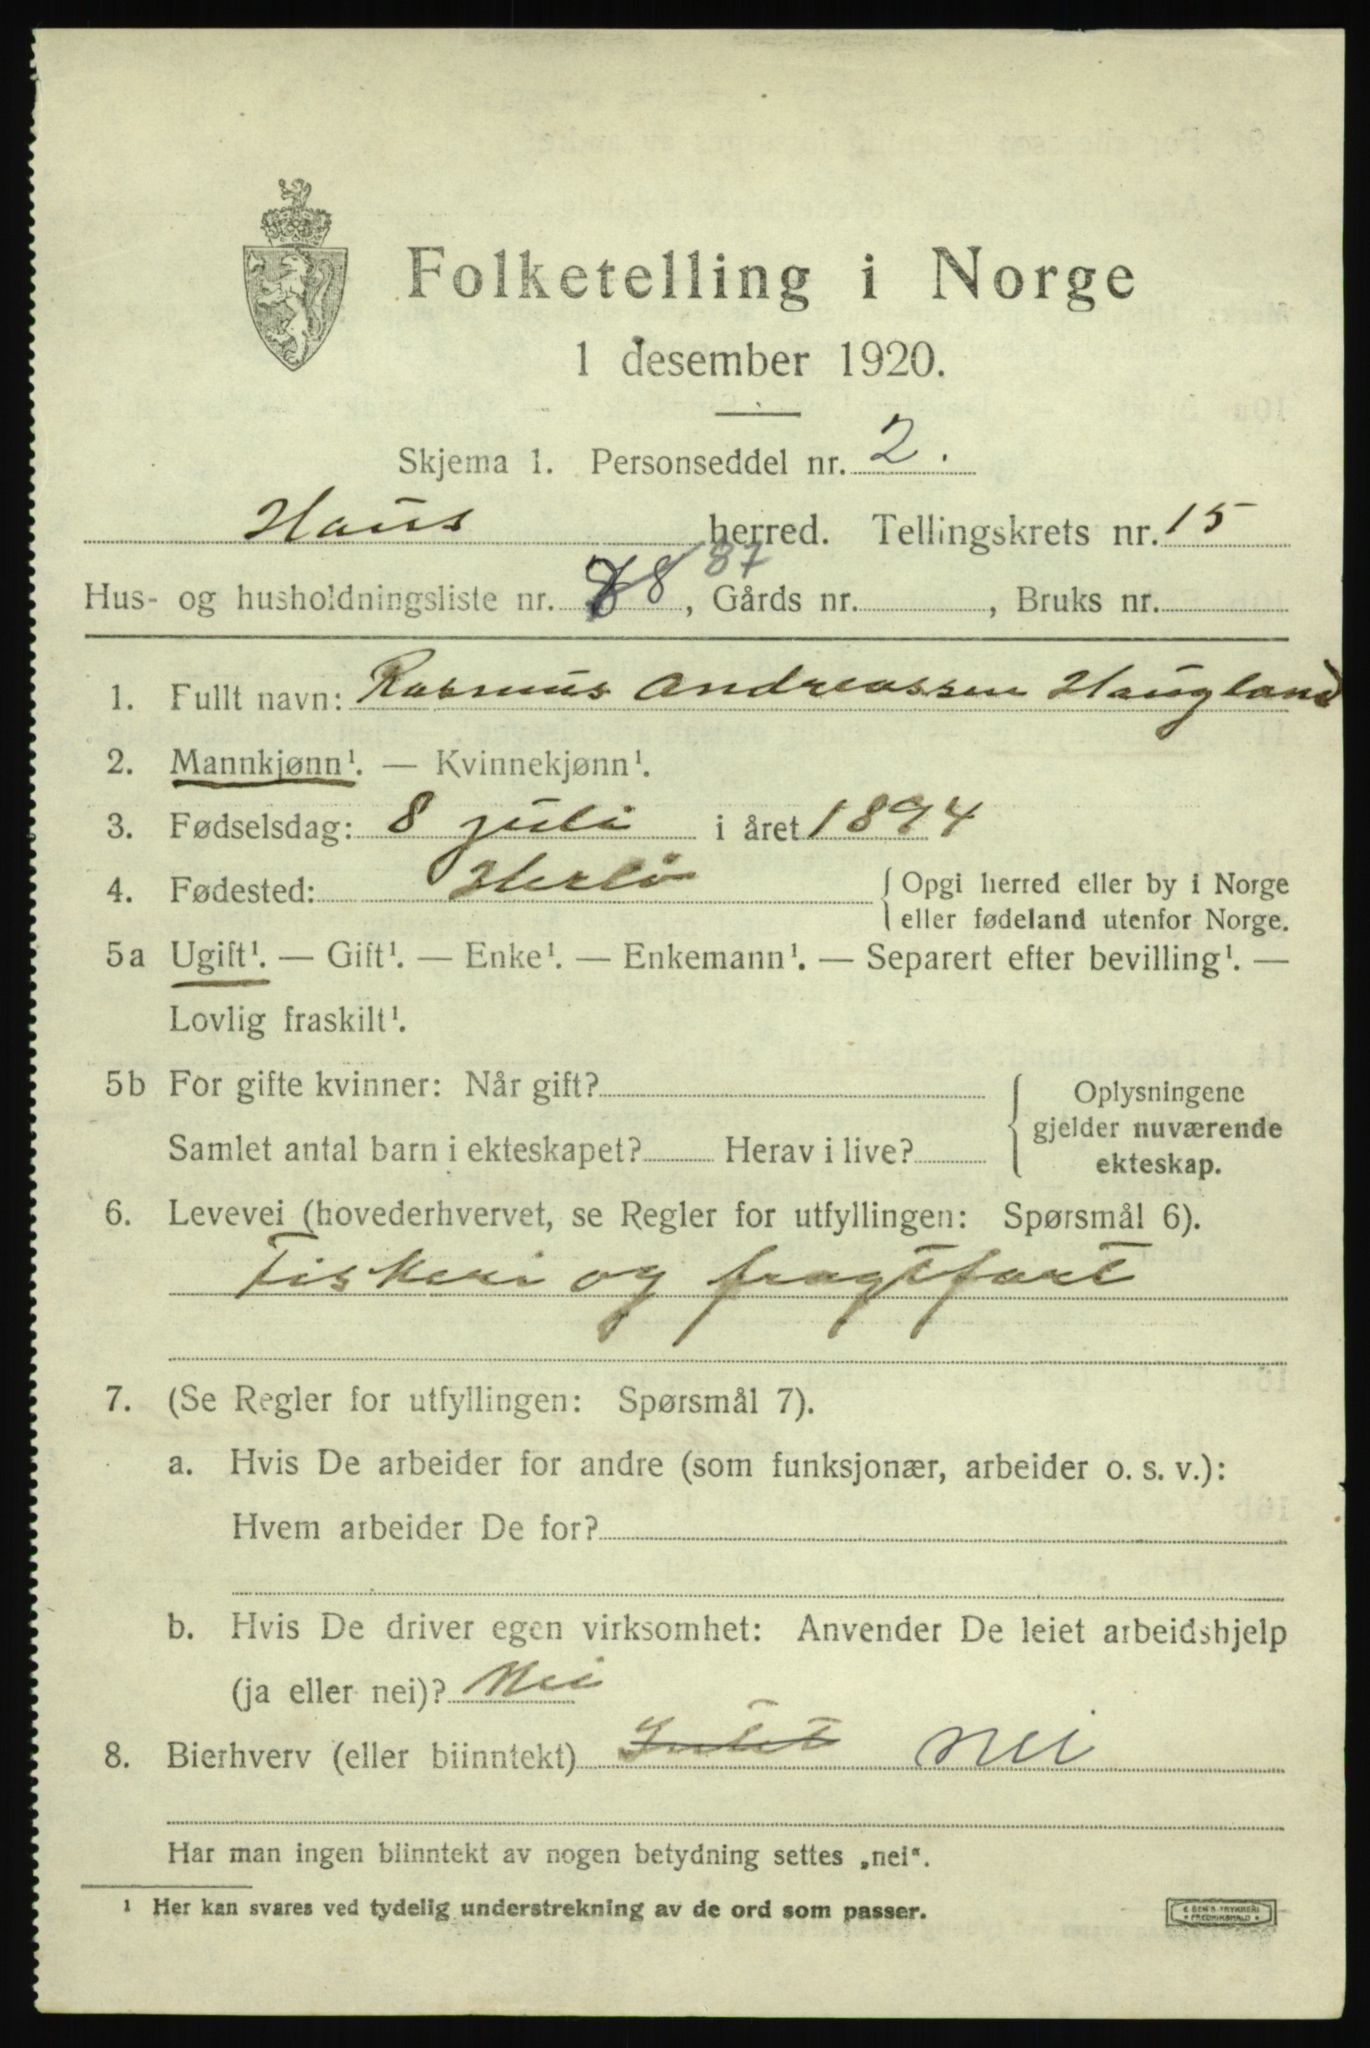 Folketelling i Norge
1 desember 1920.
Skjema 1. Personseddel nr. 2.
Haus herred. Tellingskrets nr. 15
Hus- og husholdningsliste nr. 78 87, Gårds nr. , Bruks nr.
1. Fullt navn: Rasmus Andreassen Haugland
2. Mannkjønn¹. — Kvinnekjønn¹.
3. Fødselsdag: 8 juli i året 1894
4. Fødested: Herlø { Opgi herred eller by i Norge
eller fødeland utenfor Norge.
5a Ugift¹. — Gift¹. — Enke¹. — Enkemann¹. — Separert efter bevilling¹. —
Lovlig fraskilt¹.
5b For gifte kvinner: Når gift? { Oplysningene
gjelder nuværende
Samlet antal barn i ekteskapet? Herav i live? ekteskap.
6. Levevei (hovederhvervet, se Regler for utfyllingen: Spørsmål 6).
Fiskeri og fragtfart
7. (Se Regler for utfyllingen: Spørsmål 7).
a. Hvis De arbeider for andre (som funksjonær, arbeider o. s. v.):
Hvem arbeider De for?
b. Hvis De driver egen virksomhet: Anvender De leiet arbeidshjelp
(ja eller nei)? Nei
8. Bierhverv (eller biinntekt) Intet Nei
Har man ingen biinntekt av nogen betydning settes „nei“.
¹ Her kan svares ved tydelig understrekning av de ord som passer.